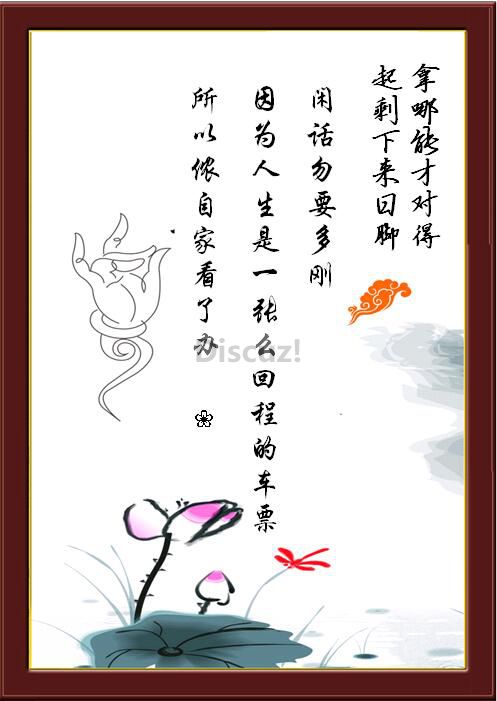 拿哪能才对得
起剩下来日脚
闲话勿要多刚
因为人生是一张么回程的车票
所以侬自家看了办
Discuz!